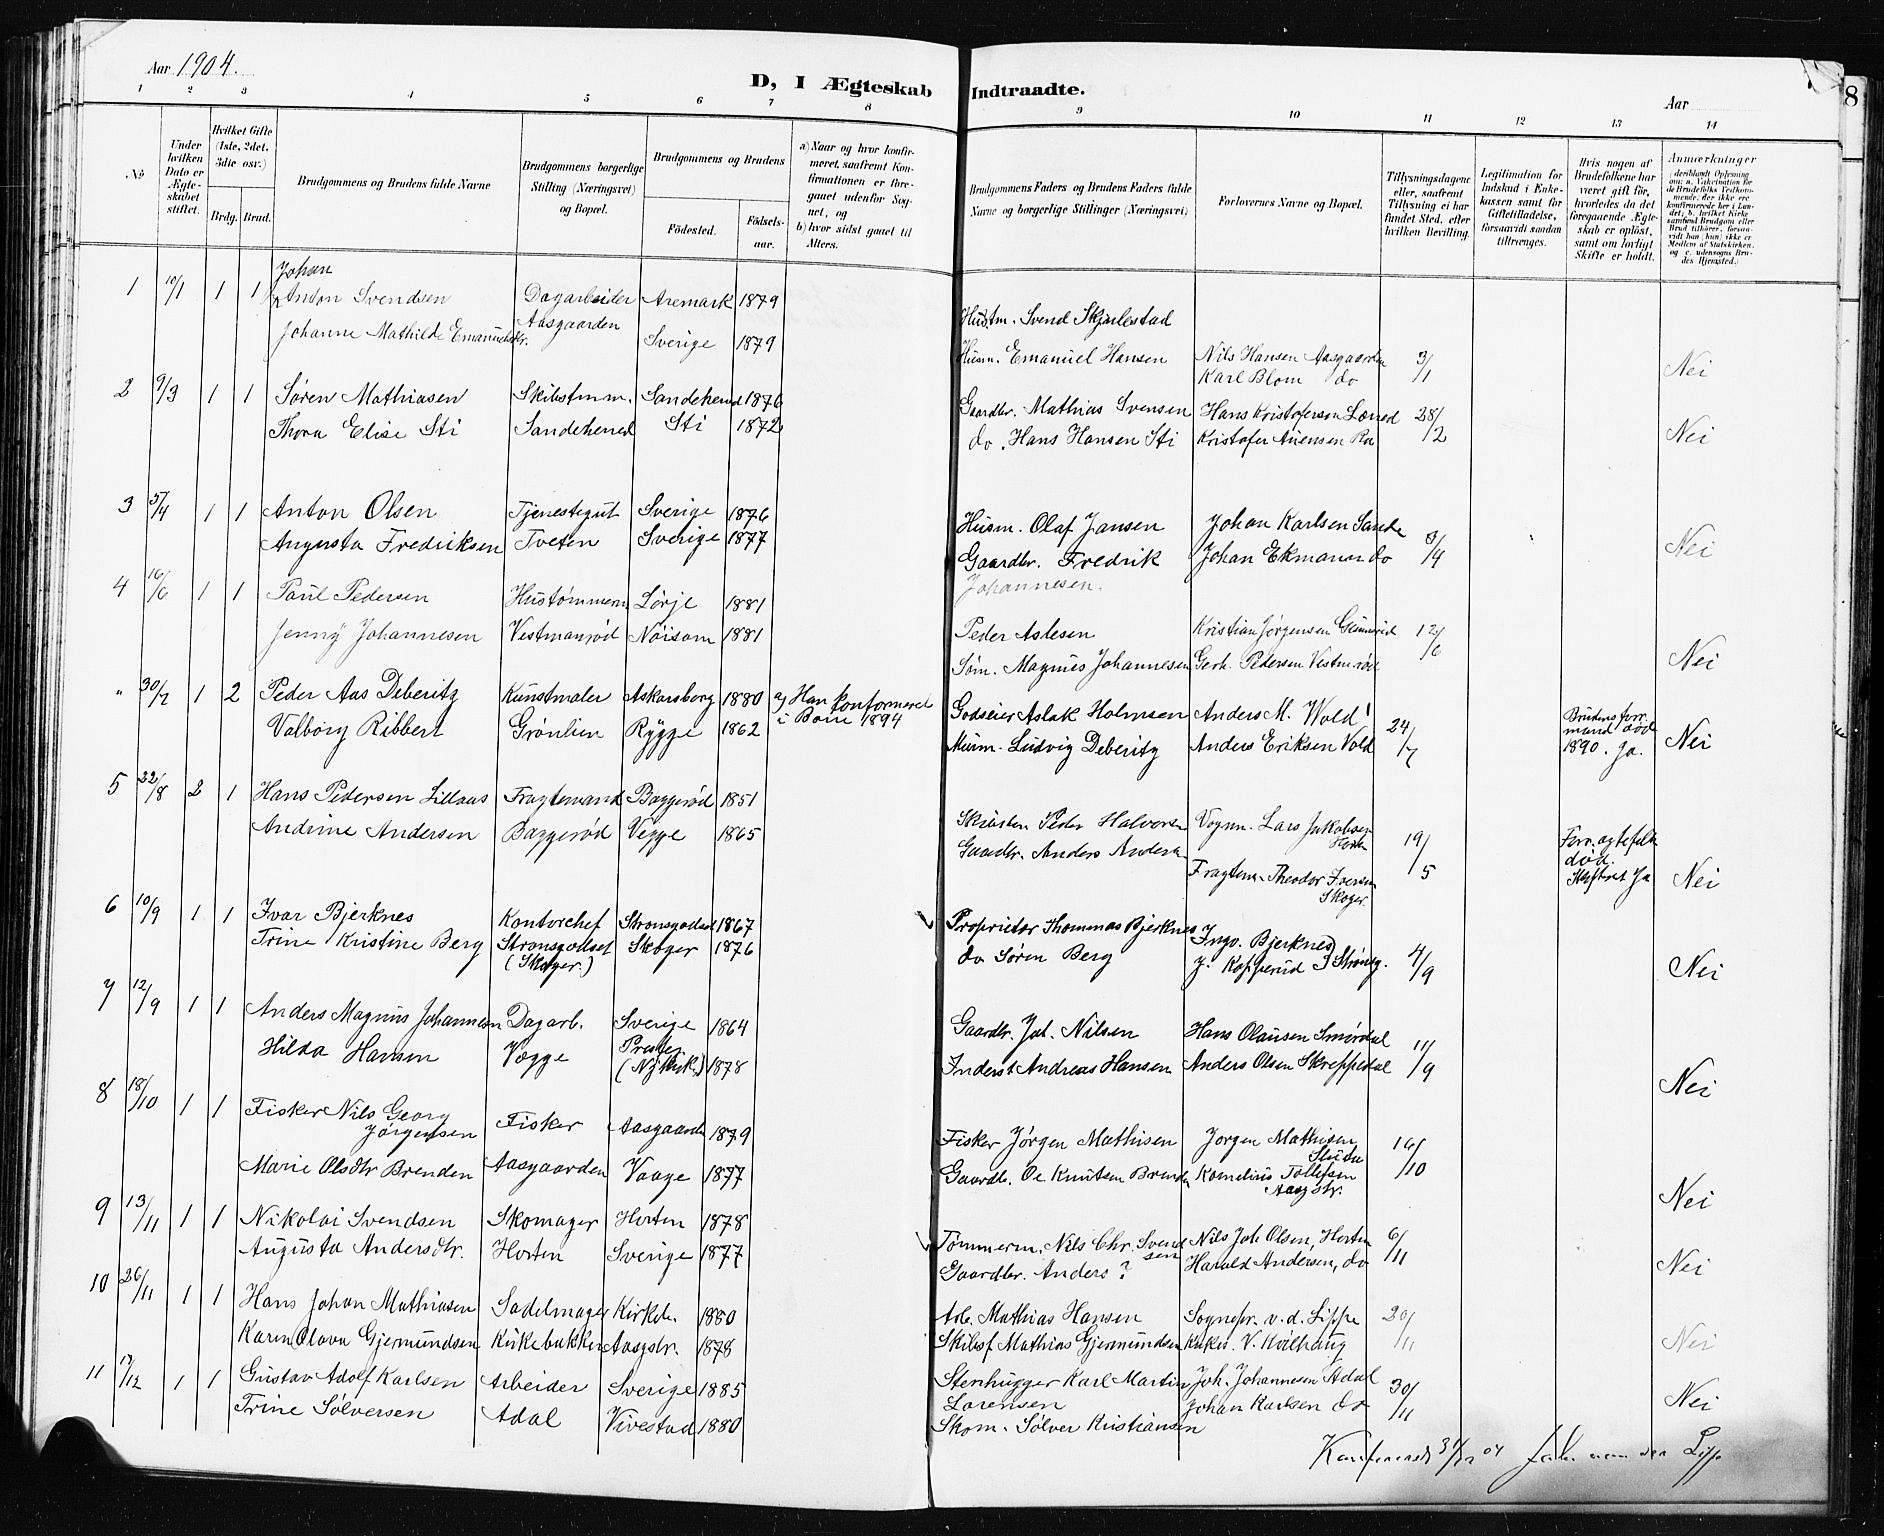 Aar 1904.
D, I Ægteskab Indtraadte.
Aar
8
1 2 3 4 5 6 7 8 9 10 11 12 13 14
No
Under hvilken Dato er Ægteskabet stiftet.
Hvilket Gifte (1ste, 2det, 3die osv.)
Brdg. Brud.
Brudgommens og Brudens fulde Navne
Brudgommens borgerlige Stilling (Næringsvei) og Bopæl.
Brudgommens og Brudens
Fødested. Fødselsaar.
a) Naar og hvor konfirmeret, saafremt Konfirmationen er foregaaet udenfor Sognet, og
b) hvor sidst gaaet til Alters.
Brudgommens Faders og Brudens Faders fulde Navne og borgerlige Stillinger (Næringsvei)
Forlovernes Navne og Bopæl.
Tillysningsdagene eller, saafremt Tillysning ei har fundet Sted, efter hvilken Bevilling.
Legitimation for Indskud i Enkekassen samt for Giftetilladelse, forsaavidt saadan tiltrænges.
Hvis nogen af Brudefolkene har været gift før, hvorledes da det foregaaende Ægteskab er opløst, samt om lovligt Skifte er holdt.
Anmærkninger
1 10/1 1 1 Johan Anton Svendsen Dagarbeider Aremark 1879 Husm. Svend Skjærlestad
Johanne Mathilde Emanuelsdtr. Aasgaarden Sverige 1879 Husm. Emanuel Hansen Nils Hansen Aasgaarden 3/1 Nei
Karl Blom do
2 9/3 1 1 Søren Mathiasen Skibstmm. Sandeherred 1876 Gaardbr. Mathias Svensen Hans Kristofersen Lerred 28/2
Thora Elise Sti Sandeherred Sti 1872 do. Hans Hansen Sti Kristofer Auensen Ra Nei
3 5/4 1 1 Anton Olsen Tjenestegut Sverige 1876 Husm. Olaf Jansen Johan Karlsen Sande 3/4
Augusta Fredriksen Tveten Sverige 1877 Gaardbr. Fredrik Johannesen. Johan Ekmanar do Nei
4 16/6 1 1 Paul Pedersen Hustømmerm Lørje 1881 Peder Aslesen Kristian Jørgensen Gunnerød 12/6
Jenny Johannesen Vestmanrød Nøisom 1881 Søm. Magnus Johannesen Gerh. Pedersen Vestmrød Nei
" 30/7 1 2 Peder Aas Deberitz Kunstmaler Askarsborg 1880 a) Han konformeret i Borre 1894 Godseier Aslak Holmsen Anders M. Wold 24/7 Brudens forr. mand død 1890. Ja. Nei
Valborg Ribbert Grønlien Rygge 1862 Murm. Ludvig Deberitz Anders Eriksen Vold
5 22/8 2 1 Hans Pedersen Lillaas Fragtemand Baggerød 1851 Skibstm Peder Halvorsen Vognm. Lars Jakobsen Horten 19/5 Forr. ægtefelle død. Skiftet Ja Nei
Andrine Andersen Baggerød Vegge 1865 Gaardbr. Anders Andersn Fragtem. Theodor Iversen Skoger.
6 10/9 1 1 Ivar Bjerknes Kontorchef Strømsgodset 1867 Proprietær Thommas Bjerknes Ingv. Bjerknes 4/9
Trine Kristine Berg Strømsgodset (Skoger.) Skoger 1876 do Søren Berg J. Kopperud Strømsg. Nei
7 12/9 1 1 Anders Magnus Johannesn Dagarb. Sverige 1864 Gaardbr. Joh. Nilsen Hans Olausen Smørdal 11/9
Hilda Hansen Vegge Presten (Nykirk.) 1878 Inderst Andreas Hansen Anders Olsen Skreppedal Nei
8 18/10 1 1 Fisker Nils Georg Jørgensen Fisker Aasgaarden 1879 Fisker Jørgen Mathisen Jørgen Mathisen 16/10
Marie Olsdtr Brenden Aasgaarden Vaage 1877 Gaardb. Oe Knutsen Brenden Kornelius Tollefsen Aasgstr. Nei
9 13/11 1 1 Nikolai Svendsen Skomager Horten 1878 Tømmerm. Nils Chr. Svendsen Nils Joh Olsen, Horten 6/11
Augusta Andersdtr. Horten Sverige 1877 Gaardbr. Anders ? Harald Andersen, do Nei
10 26/11 1 1 Hans Johan Mathiasen Sadelmager Kirkeb. 1880 Arb. Mathias Hansen Sognepr. v. d. Lippe 20/11
Karen Olava Gjermundsen Kirkebakken Aasgstr. 1878 Skibsf Mathias Gjermundsen Kirkes. V. Kvilhaug Nei
11 17/12 1 1 Gustav Adolf Karlsen Arbeider Sverige 1885 Stenhugger Karl Martin Lorensen Joh. Johannesen Adal 30/11 Nei
Trine Sølversen Adal Vivestad 1880 Skom. Sølver Kristiansen Johan Karlsen do
Konfereret 31/12 04 Joh. von der Lippe